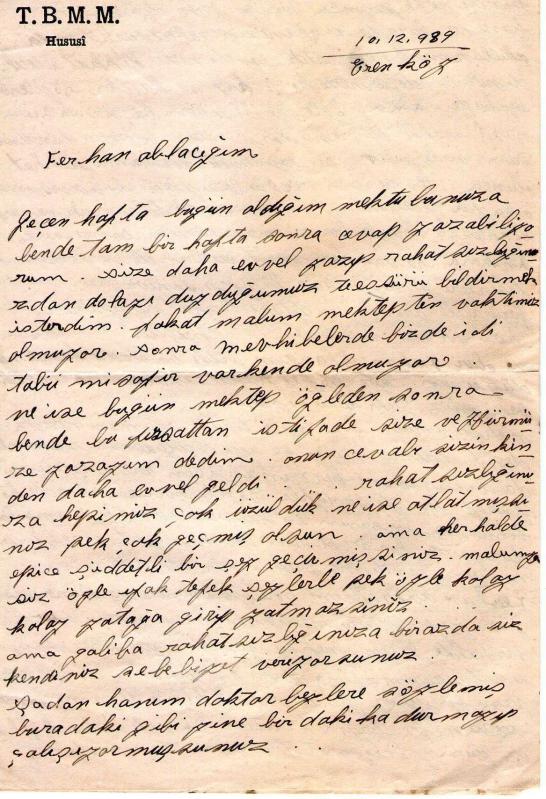 T. B. M. M.
Hususî
10.12.989
Erenköy
Ferhan ablacığım
geçen hafta bugün aldığım mektubunuza
bende tam bir hafta sonra cevap yazabiliyo
rum size daha evvel yazıp rahatsızlığını
zdan dolayı duyduğumuz teesürü bildirmek
isterdim. fakat malum mektepten vaktimiz
olmuyor. sonra mevhibelerde bizde idi
tabii misafir varkende olmuyor.
ne ise bugün mektep öğleden sonra
bende bu fırsattan istifade size ve
ze yazayım dedim. onun cevabı sizinkin
den daha evvel geldi. rahatsızlığını
za hepimiz çok üzüldük ne ise atlatmışsı
nız pek çok geçmiş olsun. ama herhalde
epice şiddetli bir şey geçirmişsiniz. malumya
siz öyle ufak tefek şeylerle pek öyle kolay
kolay yatağa girip yatmazsınız.
ama galiba rahatsızlığınıza birazda siz
kendiniz sebebiyet veriyorsunuz.
Şadan hanım doktor beylere söylemiş
buradaki gibi yine bir dakika durmayıp
çalışıyormuşsunuz...